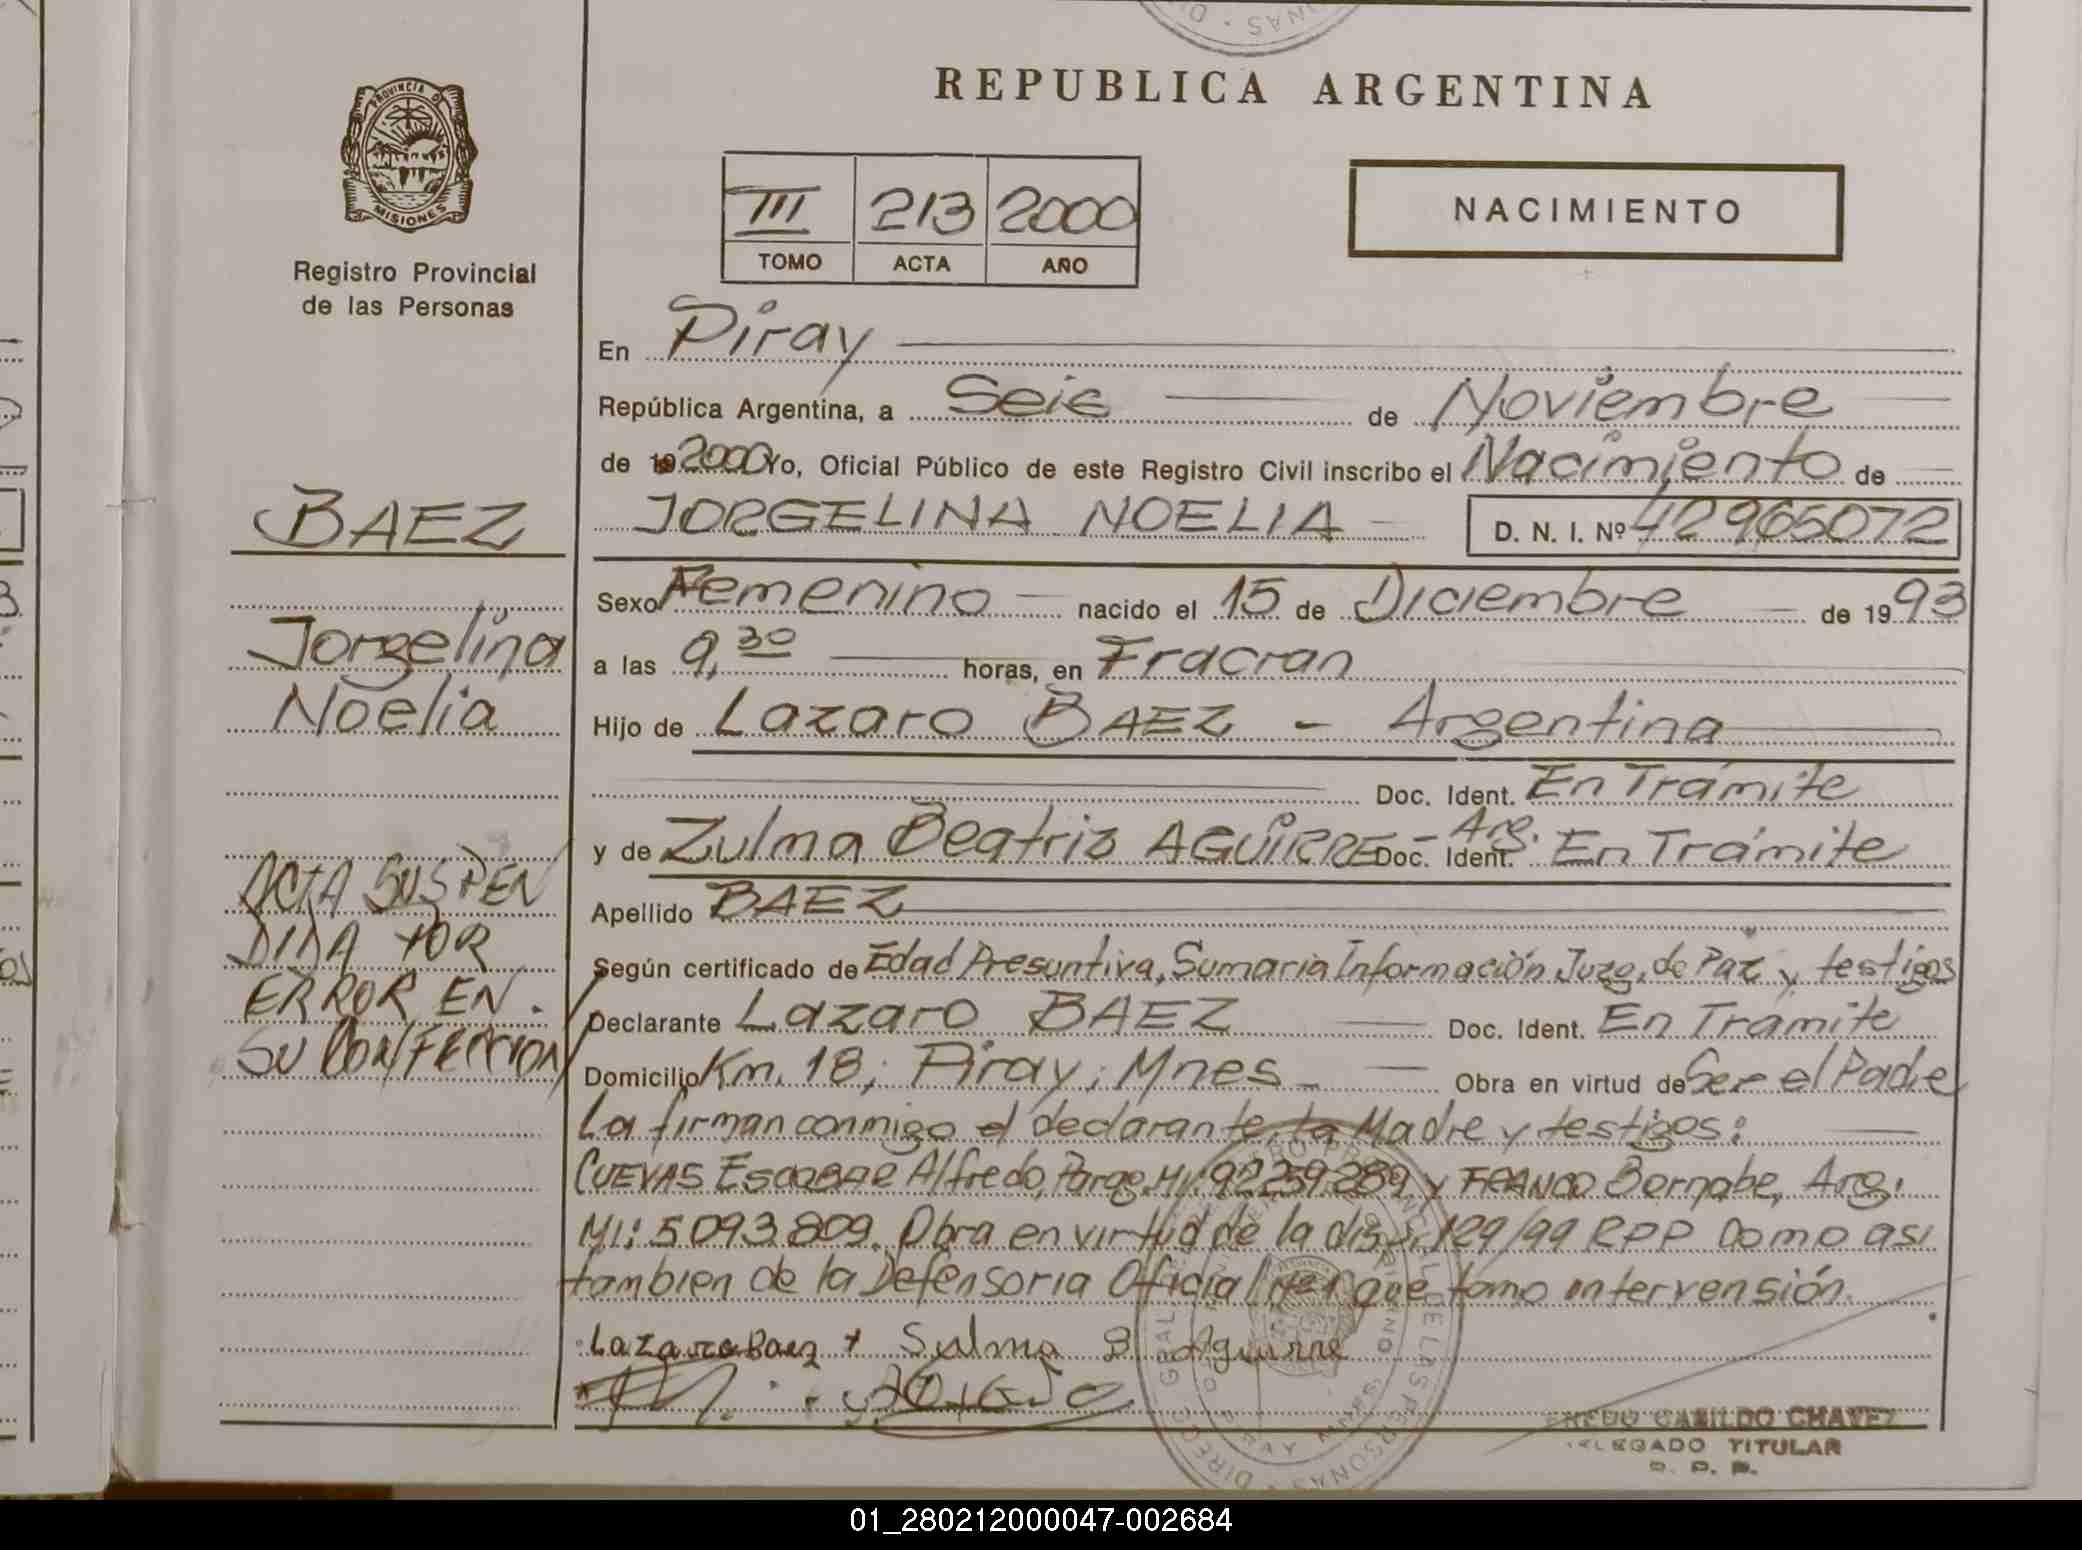 REPUBLICA ARGENTINA
PROVINCIA D
MISIONES
Registro Provincial
de las Personas
III 213 2000
TOMO ACTA AÑO
NACIMIENTO
En Piray
República Argentina, a Seis de Noviembre
de 19 2000 Yo, Oficial Público de este Registro Civil inscribo el Nacimiento de
JORGELINA NOELIA D. N. I. Nº 42965072
Sexo Femenino nacido el 15 de Diciembre de 1993
a las 9,30 horas, en Fracran
Hijo de Lazaro BAEZ - Argentina
Doc. Ident. En Trámite
y de Zulma Beatriz AGUIRRE - Arg. Doc. Ident. En Trámite
Apellido BAEZ
Según certificado de Edad Presuntiva, Sumaria Información Juzg. de Paz y testigos
Declarante Lazaro BAEZ Doc. Ident. En Tramite
Domicilio Km. 18, Piray, Mnes Obra en virtud de Ser el Padre
La firman conmigo el declarante, la Madre y testigos:
CUEVAS ESCOBAR Alfredo, Parag. MI: 92259289 y FRANCO Bernabe, Arg.
MI: 5093809. Obra en virtud de la disp. 129/99 RPP Como asi
tambien de la Defensoria Oficial Nº 1 que tomo intervensión.
Lazaro Baez + Sulma B Aguirre
BAEZ
Jorgelina
Noelia
ACTA SUSPEN
DIDA POR
ERROR EN
SU CONFECCION
CASILDO CHAVEZ
DELEGADO TITULAR
01_280212000047-002684